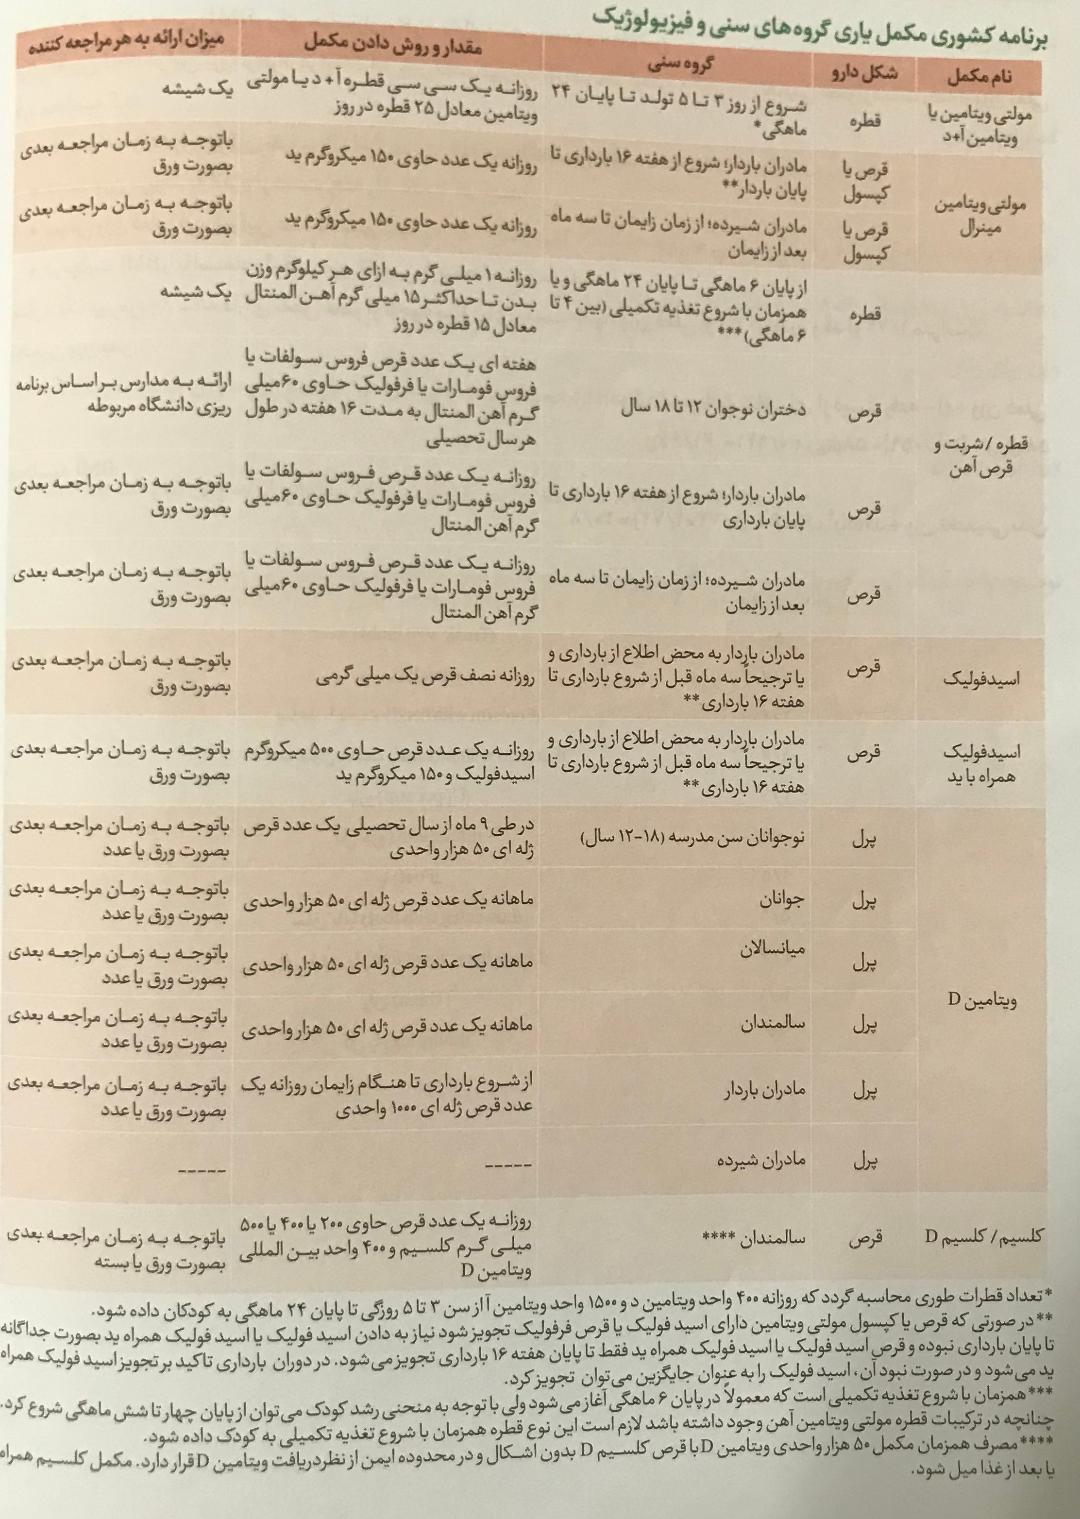 برنامه کشوری مکمل یاری گروه‌های سنی و فیزیولوژیک
نام مکمل
شکل دارو
گروه سنی
مقدار و روش دادن مکمل
میزان ارائه به هر مراجعه کننده
مولتی ویتامین یا
ویتامین آ+د
قطره
شروع از روز ۳ تا ۵ تولد تا پایان ۲۴
ماهگی*
روزانه یک سی سی قطره آ + د یا مولتی
ویتامین معادل ۲۵ قطره در روز
یک شیشه
مولتی ویتامین
مینرال
قرص یا
کپسول
مادران باردار؛ شروع از هفته ۱۶ بارداری تا
پایان باردار**
روزانه یک عدد حاوی ۱۵۰ میکروگرم ید
باتوجه به زمان مراجعه بعدی
بصورت ورق
قرص یا
کپسول
مادران شیرده؛ از زمان زایمان تا سه ماه
بعد از زایمان
روزانه یک عدد حاوی ۱۵۰ میکروگرم ید
باتوجه به زمان مراجعه بعدی
بصورت ورق
قطره / شربت و
قرص آهن
قطره
از پایان ۶ ماهگی تا پایان ۲۴ ماهگی و یا
همزمان با شروع تغذیه تکمیلی (بین ۴ تا
۶ ماهگی)***
روزانه ۱ میلی گرم به ازای هر کیلوگرم وزن
بدن تا حداکثر ۱۵ میلی گرم آهن المنتال
معادل ۱۵ قطره در روز
یک شیشه
قرص
دختران نوجوان ۱۲ تا ۱۸ سال
هفته ای یک عدد قرص فروس سولفات یا
فروس فومارات یا فرفولیک حاوی ۶۰میلی
گرم آهن المنتال به مدت ۱۶ هفته در طول
هر سال تحصیلی
ارائه به مدارس بر اساس برنامه
ریزی دانشگاه مربوطه
قرص
مادران باردار؛ شروع از هفته ۱۶ بارداری تا
پایان بارداری
روزانه یک عدد قرص فروس سولفات یا
فروس فومارات یا فرفولیک حاوی ۶۰میلی
گرم آهن المنتال
باتوجه به زمان مراجعه بعدی
بصورت ورق
قرص
مادران شیرده؛ از زمان زایمان تا سه ماه
بعد از زایمان
روزانه یک عدد قرص فروس سولفات یا
فروس فومارات یا فرفولیک حاوی ۶۰میلی
گرم آهن المنتال
باتوجه به زمان مراجعه بعدی
بصورت ورق
اسیدفولیک
قرص
مادران باردار به محض اطلاع از بارداری و
یا ترجیحاً سه ماه قبل از شروع بارداری تا
هفته ۱۶ بارداری**
روزانه نصف قرص یک میلی گرمی
باتوجه به زمان مراجعه بعدی
بصورت ورق
اسیدفولیک
همراه با ید
قرص
مادران باردار به محض اطلاع از بارداری و
یا ترجیحاً سه ماه قبل از شروع بارداری تا
هفته ۱۶ بارداری**
روزانه یک عدد قرص حاوی ۵۰۰ میکروگرم
اسیدفولیک و ۱۵۰ میکروگرم ید
باتوجه به زمان مراجعه بعدی
بصورت ورق
ویتامین D
پرل
نوجوانان سن مدرسه (۱۸-۱۲ سال)
در طی ۹ ماه از سال تحصیلی یک عدد قرص
ژله ای ۵۰ هزار واحدی
باتوجه به زمان مراجعه بعدی
بصورت ورق یا عدد
پرل
جوانان
ماهانه یک عدد قرص ژله ای ۵۰ هزار واحدی
باتوجه به زمان مراجعه بعدی
بصورت ورق یا عدد
پرل
میانسالان
ماهانه یک عدد قرص ژله ای ۵۰ هزار واحدی
باتوجه به زمان مراجعه بعدی
بصورت ورق یا عدد
پرل
سالمندان
ماهانه یک عدد قرص ژله ای ۵۰ هزار واحدی
باتوجه به زمان مراجعه بعدی
بصورت ورق یا عدد
پرل
مادران باردار
از شروع بارداری تا هنگام زایمان روزانه یک
عدد قرص ژله ای ۱۰۰۰ واحدی
باتوجه به زمان مراجعه بعدی
بصورت ورق یا عدد
پرل
مادران شیرده
-----
-----
کلسیم / کلسیم D
قرص
سالمندان ****
روزانه یک عدد قرص حاوی ۲۰۰ یا ۴۰۰ یا ۵۰۰
میلی گرم کلسیم و ۴۰۰ واحد بین المللی
ویتامین D
باتوجه به زمان مراجعه بعدی
بصورت ورق یا بسته
*تعداد قطرات طوری محاسبه گردد که روزانه ۴۰۰ واحد ویتامین د و ۱۵۰۰ واحد ویتامین آ از سن ۳ تا ۵ روزگی تا پایان ۲۴ ماهگی به کودکان داده شود.
**در صورتی که قرص یا کپسول مولتی ویتامین دارای اسید فولیک یا قرص فرفولیک تجویز شود نیاز به دادن اسید فولیک یا اسید فولیک همراه ید بصورت جداگانه
تا پایان بارداری نبوده و قرص اسید فولیک یا اسید فولیک همراه ید فقط تا پایان هفته ۱۶ بارداری تجویز می‌شود. در دوران بارداری تاکید بر تجویز اسید فولیک همراه
ید می‌شود و در صورت نبود آن، اسید فولیک را به عنوان جایگزین می‌توان تجویز کرد.
***همزمان با شروع تغذیه تکمیلی است که معمولاً در پایان ۶ ماهگی آغاز می‌شود ولی با توجه به منحنی رشد کودک می‌توان از پایان چهار تا شش ماهگی شروع کرد.
چنانچه در ترکیبات قطره مولتی ویتامین آهن وجود داشته باشد لازم است این نوع قطره همزمان با شروع تغذیه تکمیلی به کودک داده شود.
****مصرف همزمان مکمل ۵۰ هزار واحدی ویتامین D با قرص کلسیم D بدون اشکال و در محدوده ایمن از نظر دریافت ویتامین D قرار دارد. مکمل کلسیم همراه
یا بعد از غذا میل شود.